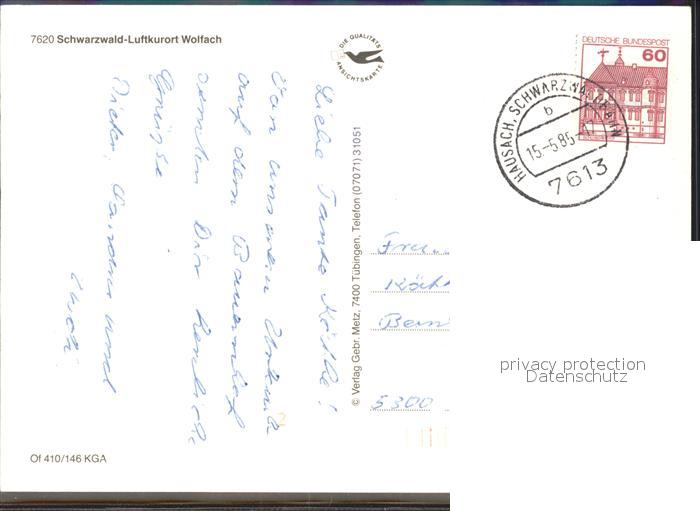 7620 Schwarzwald-Luftkurort Wolfach
DIE QUALITÄTS
ANSICHTSKARTE
DEUTSCHE BUNDESPOST
60
HAUSACH, SCHWARZWALDBAHN
b
15.-5.85-17
7613
Liebe Tante Käthe!
Von unserem Urlaub
auf dem Bauernhof
senden Dir herzliche
Grüsse
Dieter, und
© Verlag Gebr. Metz, 7400 Tübingen, Telefon (07071) 31051
Frau
5300
privacy protection
Datenschutz
Of 410/146 KGA